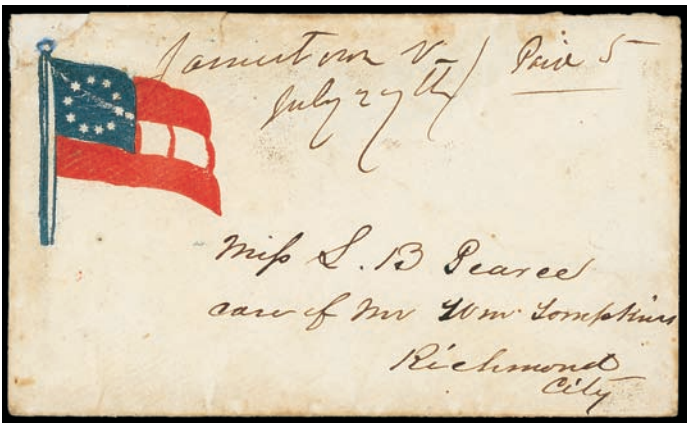 Jamestown Va Paid 5
July 27th
Miss S. B Pearce
care of Mr Wm Tompkins
Richmond
City